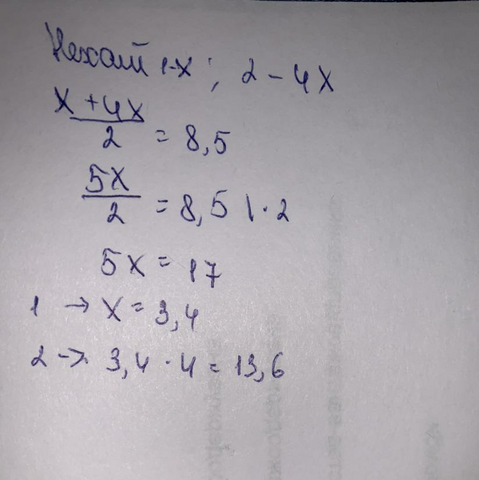 Нехай 1-x; 2 - 4x
x + 4x / 2 = 8,5
5x / 2 = 8,5 | · 2
5x = 17
1 → x = 3,4
2 → 3,4 · 4 = 13,6